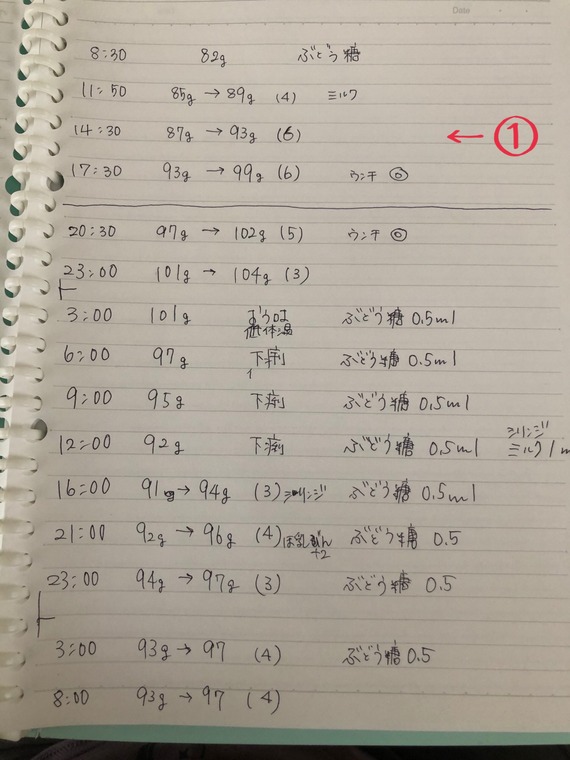 Date
8:30 82g ぶどう糖
11:50 85g → 89g (4) ミルク
14:30 87g → 93g (6) ← ①
17:30 93g → 99g (6) ウンチ ◎
20:30 97g → 102g (5) ウンチ ◎
23:00 101g → 104g (3)
3:00 101g 低体温 ぶどう糖 0.5ml
6:00 97g 下痢 ぶどう糖 0.5ml
9:00 95g 下痢 ぶどう糖 0.5ml
12:00 92g 下痢 ぶどう糖 0.5ml シリンジ
ミルク 1m
16:00 91g → 94g (3) シリンジ ぶどう糖 0.5ml
21:00 92g → 96g (4) ほ乳びん ぶどう糖 0.5
+2
23:00 94g → 97g (3) ぶどう糖 0.5
3:00 93g → 97 (4) ぶどう糖 0.5
8:00 93g → 97 (4)